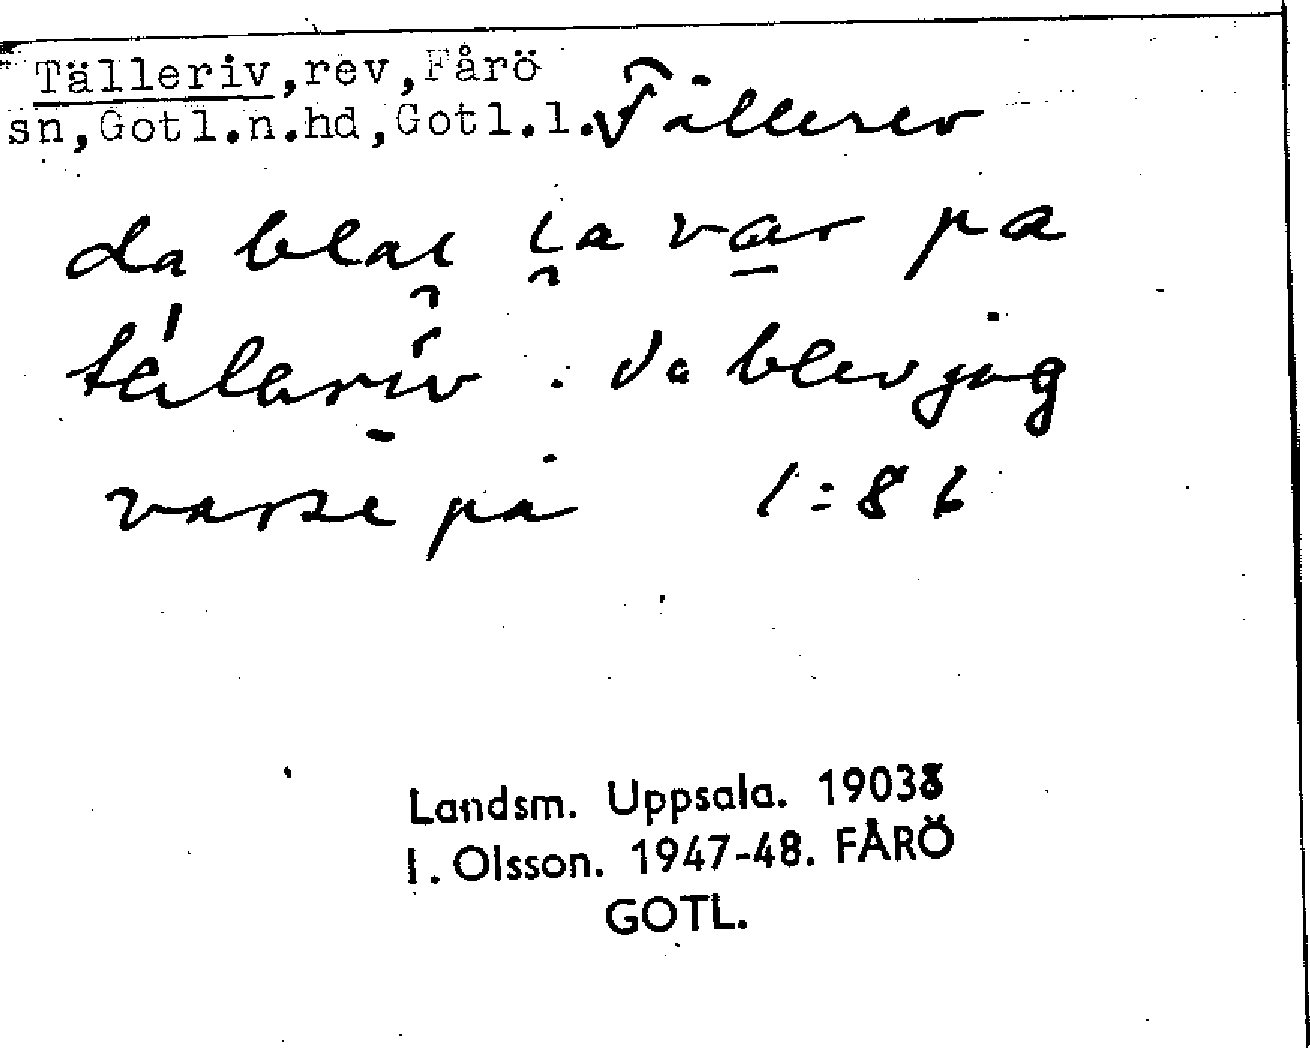 Tälleriv,rev,Fårö
sn,Gotl.n.hd,Gotl.l. Tällerev
da blai ia var pa
tälariv : da blev jag
varse på 1:86
Landsm. Uppsala. 19038
I. Olsson. 1947-48. FÅRÖ
GOTL.